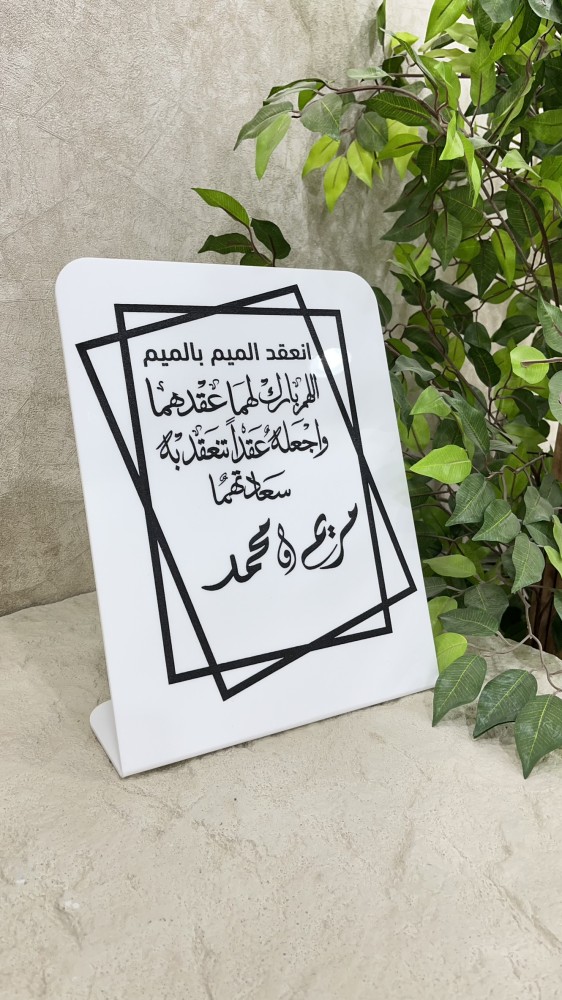 انعقد الميم بالميم
اللهم بارك لهما عقدهما
واجعله عقداً تنعقد به
سعادتهما
مريم و محمد